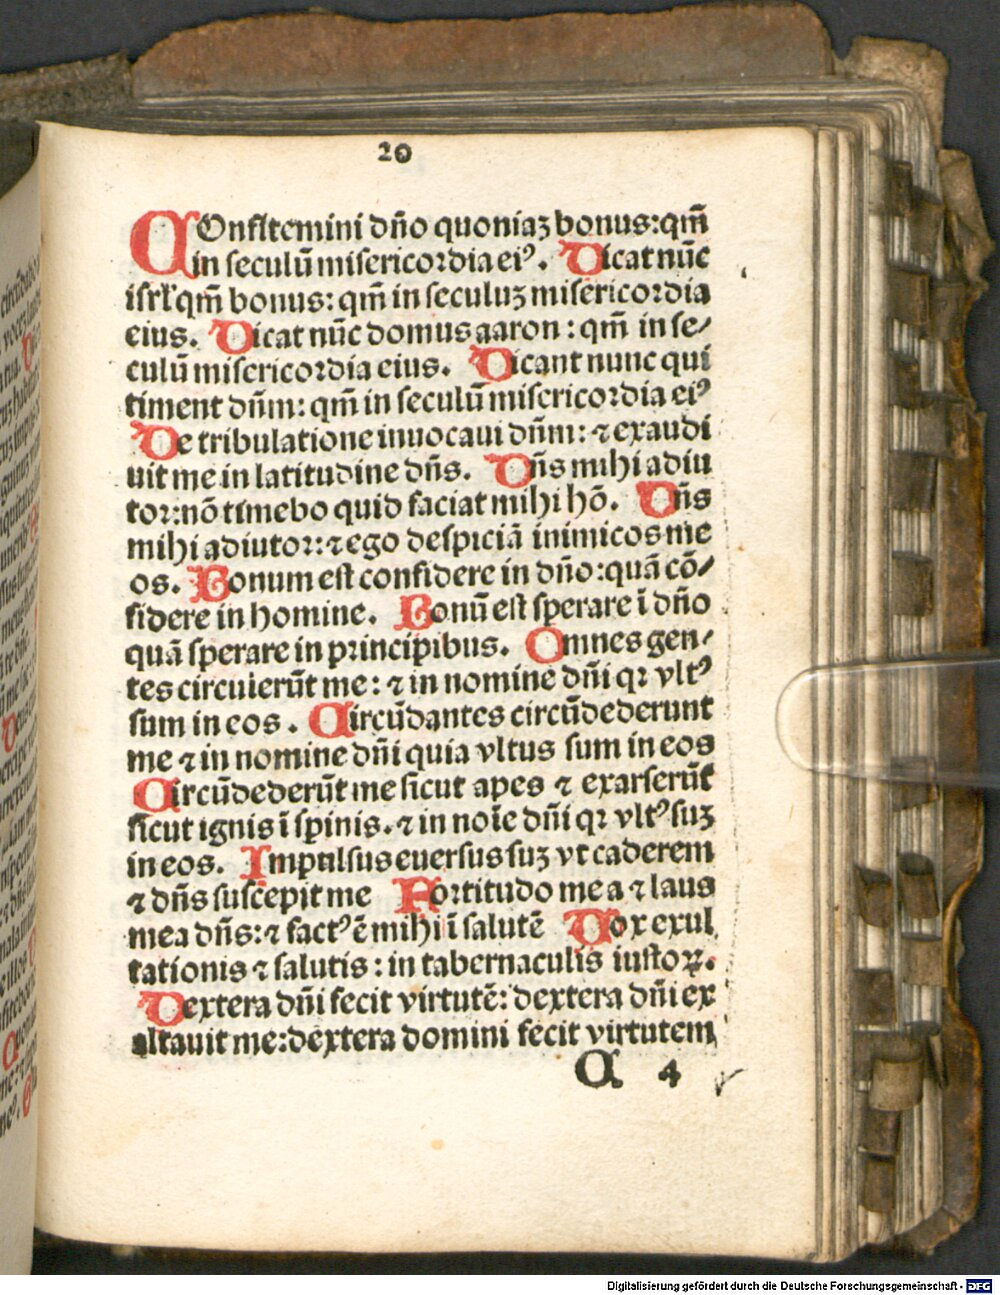 20
COnfitemini dño quoniaʒ bonus: qm̄
in seculū misericordia ei⁹. Dicat nūc
isrl̓ qm̄ bonus: qm̄ in seculuʒ misericordia
eius. Dicat nūc domus aaron: qm̄ in se⸗
culū misericordia eius. Dicant nunc qui
timent dūm: qm̄ in seculū misericordia ei⁹
De tribulatione inuocaui dūm: ⁊ exaudi
uit me in latitudine dn̄s. Dn̄s mihi adiu
tor: nō timebo quid faciat mihi hō. Dn̄s
mihi adiutor: ⁊ ego despiciā inimicos me
os. Bonum est confidere in dño: quā cō⸗
fidere in homine. Bonū est sperare ī dño
quā sperare in principibus. Omnes gen⸗
tes circuierūt me: ⁊ in nomine dn̄i qꝛ vlt⁹
sum in eos. Circūdantes circūdederunt
me ⁊ in nomine dn̄i quia vltus sum in eos
Circūdederūt me sicut apes ⁊ exarserūt
sicut ignis ī spinis. ⁊ in noīe dn̄i qꝛ vlt⁹ suʒ
in eos. Impulsus euersus suʒ vt caderem
⁊ dn̄s suscepit me Fortitudo mea ⁊ laus
mea dn̄s: ⁊ fact⁹ ē mihi ī salutē Vox exul
tationis ⁊ salutis: in tabernaculis iustoꝝ.
Dextera dn̄i fecit virtutē: dextera dn̄i ex
altauit me: dextera domini fecit virtutem
C 4
Digitalisierung gefördert durch die Deutsche Forschungsgemeinschaft - DFG